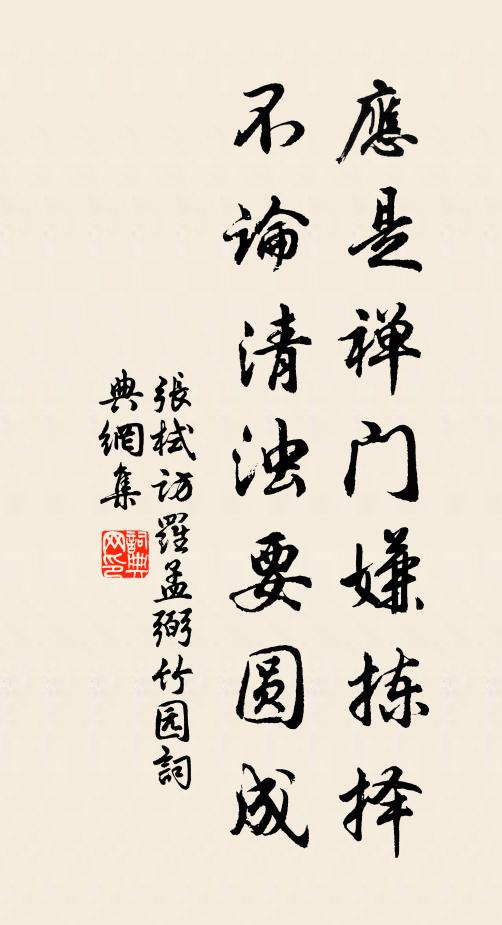 應是禅门嫌拣择
不論清浊要圆成
張栻访羅孟弼竹园詞
典網集
詞典网印